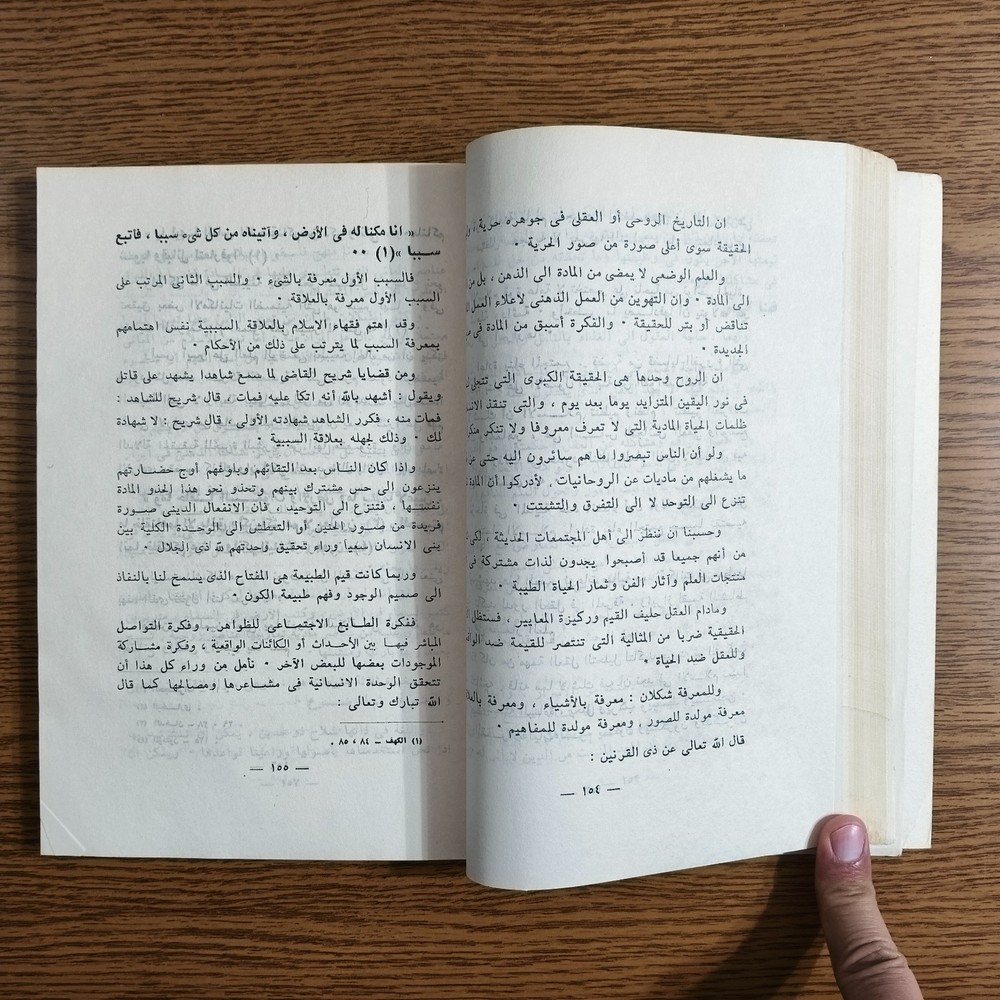 ان التاريخ الروحى أو العقلى فى جوهره حرية ،
الحقيقة سوى أعلى صورة من صور الحرية ٠
والعلم الوضعى لا يمضى من المادة الى الذهن ، بل من
الى المادة ٠ وان التهوين من العمل الذهنى لاعلاء العمل
تناقض أو بتر للحقيقة ٠ والفكرة أسبق من المادة فى
الجديدة ٠
ان الروح وحدها هى الحقيقة الكبرى التى تتجلى
فى نور اليقين المتزايد يوما بعد يوم ، والتى تنقذ
ظلمات الحياة المادية التى لا تعرف معروفا ولا تنكر
ولو أن الناس تبصروا ما هم سائرون اليه حتى
ما يشغلهم من ماديات عن الروحانيات ، لأدركوا أن المادة
تنزع الى التوحد لا الى التفرق والتشتت ٠
وحسبنا أن ننظر الى أهل المجتمعات الحديثة ،
من أنهم جميعا قد أصبحوا يجدون لذات مشتركة فى
منتجات العلم وآثار الفن وثمار الحياة الطيبة ٠
ومادام العقل حليف القيم وركيزة المعايير ، فستظل
الحقيقية ضربا من المثالية التى تنتصر للقيمة ضد
وللعقل ضد الحياة ٠
وللمعرفة شكلان : معرفة بالأشياء ، ومعرفة
معرفة مولدة للصور ، ومعرفة مولدة للمفاهيم ٠
قال الله تعالى عن ذى القرنين :
— ١٥٤ —
« انا مكنا له فى الأرض ، وآتيناه من كل شىء سببا ، فاتبع
سببا »(١) ٠٠
فالسبب الأول معرفة بالشىء ٠ والسبب الثانى المرتب على
السبب الأول معرفة بالعلاقة ٠
وقد اهتم فقهاء الاسلام بالعلاقة السببية نفس اهتمامهم
بمعرفة السبب لما يترتب على ذلك من الأحكام ٠
ومن قضايا شريح القاضى لما سمع شاهدا يشهد على قاتل
ويقول : أشهد بالله أنه اتكا عليه فمات ، قال شريح للشاهد :
فمات منه ، فكرر الشاهد شهادته الأولى ، قال شريح : لا شهادة
لك ٠ وذلك لجهله بعلاقة السببية ٠
واذا كان الناس بعد التقائهم وبلوغهم أوج حضارتهم
ينزعون الى حس مشترك بينهم وتحذو نحو هذا الحذو المادة
نفسها ، فتنزع الى التوحيد ، فان الانفعال الدينى صورة
فريدة من صور الحنين أو التعطش الى الوحدة الكلية بين
بنى الانسان سعيا وراء تحقيق وحدتهم لله ذى الجلال ٠
وربما كانت قيم الطبيعة هى المفتاح الذى يسمح لنا بالنفاذ
الى صميم الوجود وفهم طبيعة الكون ٠
ففكرة الطابع الاجتماعى للظواهر ، وفكرة التواصل
المباشر فيها بين الأحداث أو الكائنات الواقعية ، وفكرة مشاركة
الموجودات بعضها للبعض الآخر ٠ نأمل من وراء كل هذا أن
تتحقق الوحدة الانسانية فى مشاعرها ومصالحها كما قال
الله تبارك وتعالى :
(١) الكهف – ٨٤ ، ٨٥ ٠
— ١٥٥ —